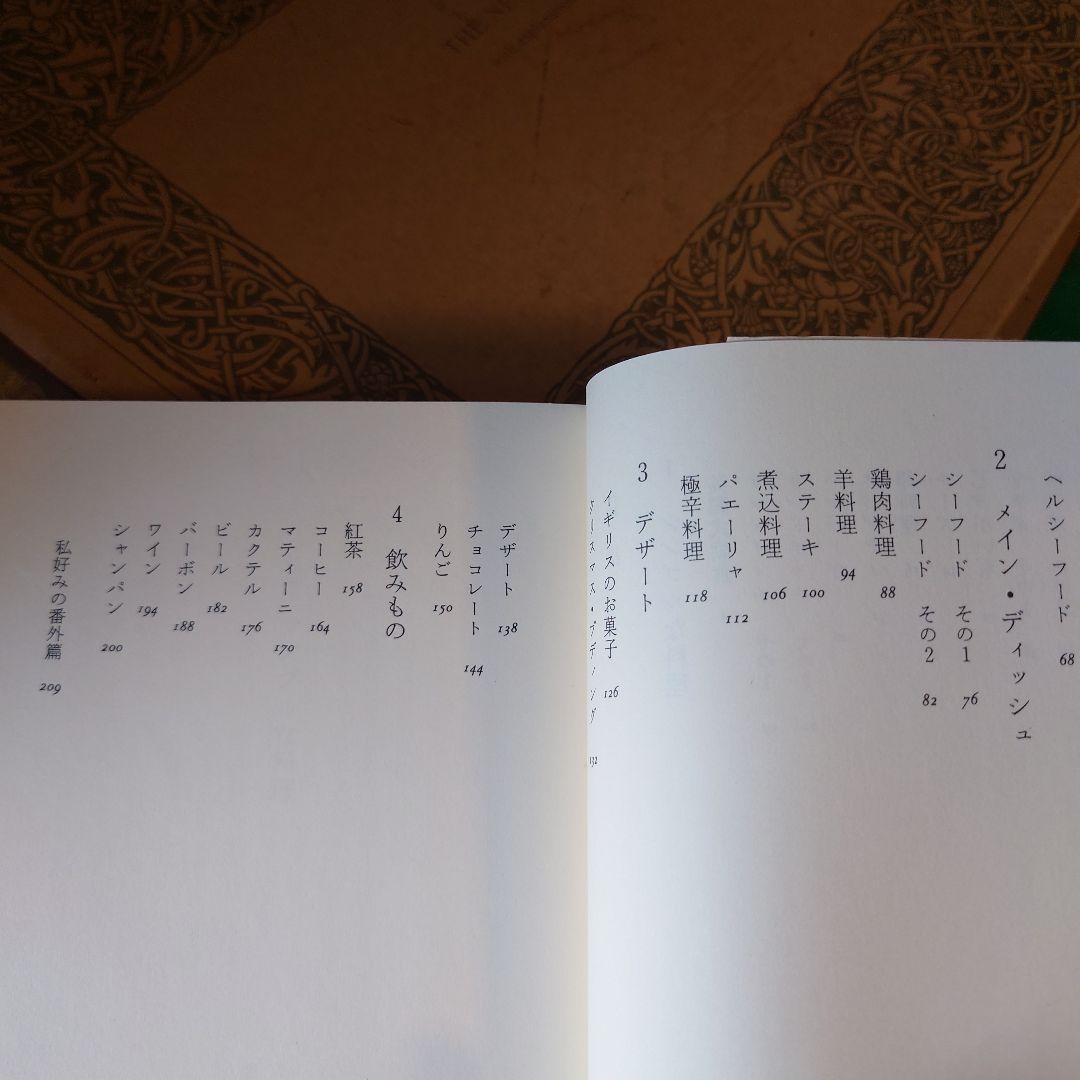 ヘルシーフード 68
2 メイン・ディッシュ
シーフード その1 76
シーフード その2 82
鶏肉料理 88
羊料理 94
ステーキ 100
煮込料理 106
パエーリャ 112
極辛料理 118
3 デザート
イギリスのお菓子 126
クリスマス・プディング 132
デザート 138
チョコレート 144
りんご 150
4 飲みもの
紅茶 158
コーヒー 164
マティーニ 170
カクテル 176
ビール 182
バーボン 188
ワイン 194
シャンパン 200
私好みの番外篇 209